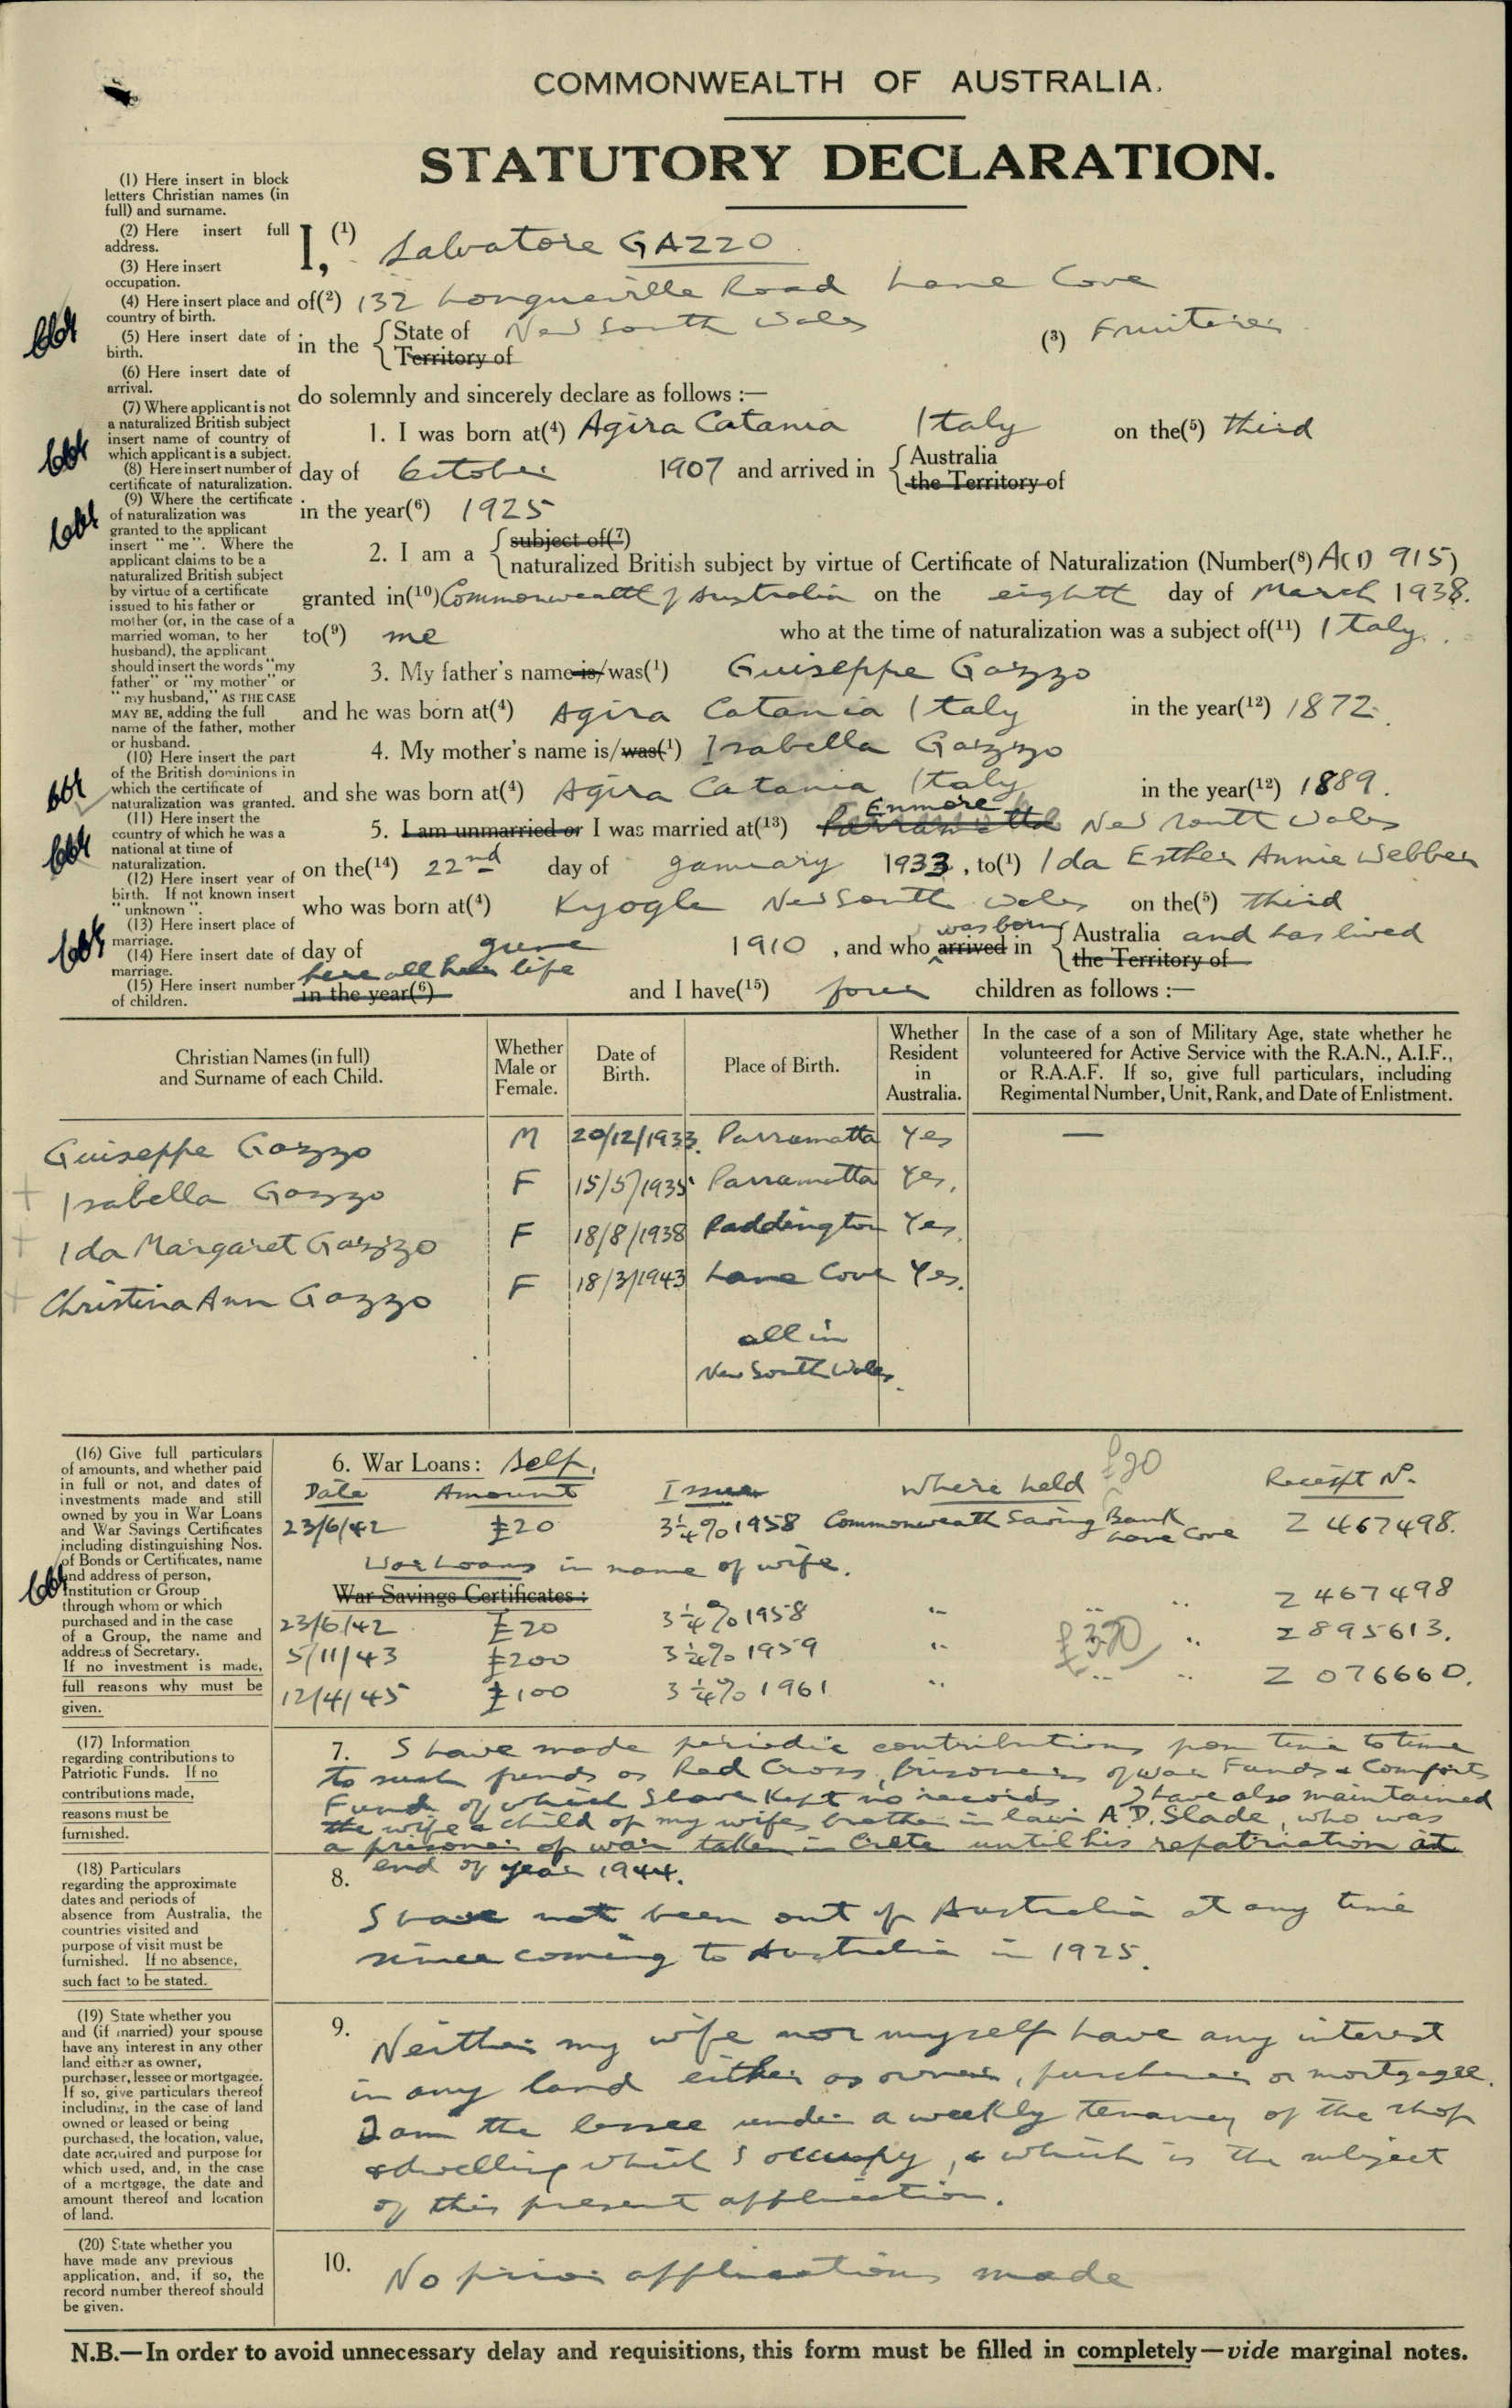 COMMONWEALTH OF AUSTRALIA.
STATUTORY DECLARATION.
(1) Here insert in block
letters Christian names (in
full) and surname.
(2) Here insert full
address.
(3) Here insert
occupation.
(4) Here insert place and
country of birth.
(5) Here insert date of
birth.
(6) Here insert date of
arrival.
(7) Where applicant is not
a naturalized British subject
insert name of country of
which applicant is a subject.
(8) Here insert number of
certificate of naturalization.
(9) Where the certificate
of naturalization was
granted to the applicant
insert "me". Where the
applicant claims to be a
naturalized British subject
by virtue of a certificate
issued to his father or
mother (or, in the case of a
married woman, to her
husband), the applicant
should insert the words "my
father" or "my mother" or
"my husband," AS THE CASE
MAY BE, adding the full
name of the father, mother
or husband.
(10) Here insert the part
of the British dominions in
which the certificate of
naturalization was granted.
(11) Here insert the
country of which he was a
national at time of
naturalization.
(12) Here insert year of
birth. If not known insert
"unknown".
(13) Here insert place of
marriage.
(14) Here insert date of
marriage.
(15) Here insert number
of children.
I, (1) Salvatore GAZZO
of(2) 132 Longueville Road Lane Cove
in the { State of New South Wales (3) Fruiterer
Territory of
do solemnly and sincerely declare as follows :—
1. I was born at(4) Agira Catania Italy on the(5) third
day of October 1907 and arrived in { Australia
the Territory of
in the year(6) 1925
2. I am a { subject of(7)
naturalized British subject by virtue of Certificate of Naturalization (Number(8) A(1) 915)
granted in(10) Commonwealth of Australia on the eighth day of March 1938.
to(9) me who at the time of naturalization was a subject of(11) Italy.
3. My father's name is/was(1) Guiseppe Gazzo
and he was born at(4) Agira Catania Italy in the year(12) 1872.
4. My mother's name is/was(1) Isabella Gazzo
and she was born at(4) Agira Catania Italy in the year(12) 1889.
Enmore
5. I am unmarried or I was married at(13) Parramatta New South Wales
on the(14) 22nd day of January 1933, to(1) Ida Esther Annie Webber
who was born at(4) Kyogle New South Wales on the(5) third
was born
day of June 1910, and who arrived in { Australia and has lived
the Territory of
here all her life
in the year(6) and I have(15) four children as follows :—
Christian Names (in full)
and Surname of each Child.
Whether
Male or
Female.
Date of
Birth.
Place of Birth.
Whether
Resident
in
Australia.
In the case of a son of Military Age, state whether he
volunteered for Active Service with the R.A.N., A.I.F.,
or R.A.A.F. If so, give full particulars, including
Regimental Number, Unit, Rank, and Date of Enlistment.
Guiseppe Gazzo M 20/12/1933. Parramatta Yes —
Isabella Gazzo F 15/5/1935 Parramatta Yes.
Ida Margaret Gazzo F 18/8/1938 Paddington Yes.
Christina Ann Gazzo F 18/3/1943 Lane Cove Yes.
all in
New South Wales.
(16) Give full particulars
of amounts, and whether paid
in full or not, and dates of
investments made and still
owned by you in War Loans
and War Savings Certificates
including distinguishing Nos.
of Bonds or Certificates, name
and address of person,
Institution or Group
through whom or which
purchased and in the case
of a Group, the name and
address of Secretary.
If no investment is made,
full reasons why must be
given.
6. War Loans: Self.
£20
Date Amount Issue Where held Receipt No.
23/6/42 £20 3¼% 1958 Commonwealth Saving Bank Lane Cove Z 467498.
War Loans in name of wife.
War Savings Certificates :
23/6/42 £20 3¼% 1958 " " " Z 467498
5/11/43 £200 3¼% 1959 " £320 " Z 895613.
12/4/45 £100 3¼% 1961 " " " Z 076660.
(17) Information
regarding contributions to
Patriotic Funds. If no
contributions made,
reasons must be
furnished.
7. I have made periodic contributions from time to time
to such funds as Red Cross, Prisoners of War Funds & Comforts
Funds of which I have kept no records I have also maintained
the wife & child of my wifes brother in law A.D. Slade, who was
a prisoner of war taken in Crete until his repatriation at
end of year 1944.
(18) Particulars
regarding the approximate
dates and periods of
absence from Australia, the
countries visited and
purpose of visit must be
furnished. If no absence,
such fact to be stated.
8.
I have not been out of Australia at any time
since coming to Australia in 1925.
(19) State whether you
and (if married) your spouse
have any interest in any other
land either as owner,
purchaser, lessee or mortgagee.
If so, give particulars thereof
including, in the case of land
owned or leased or being
purchased, the location, value,
date acquired and purpose for
which used, and, in the case
of a mortgage, the date and
amount thereof and location
of land.
9. Neither my wife nor myself have any interest
in any land either as owner, purchaser or mortgagee.
I am the lessee under a weekly tenancy of the shop
& dwelling which I occupy, & which is the subject
of this present application.
(20) State whether you
have made any previous
application, and, if so, the
record number thereof should
be given.
10. No prior applications made
N.B.—In order to avoid unnecessary delay and requisitions, this form must be filled in completely—vide marginal notes.